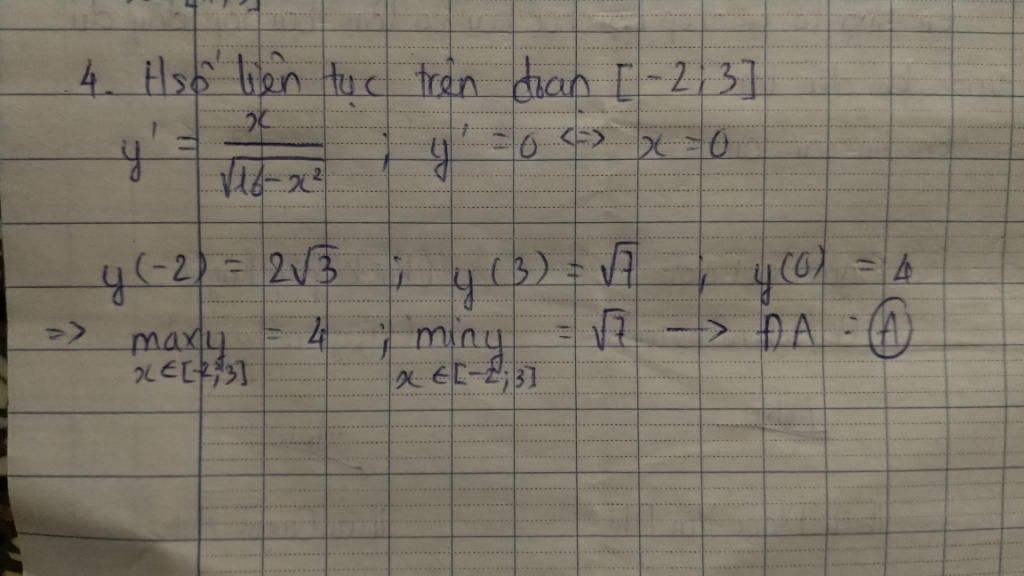 4. Hsố liên tục trên đoạn [-2; 3]
y' = x / √16-x² ; y' = 0 <=> x = 0
y(-2) = 2√3 ; y(3) = √7 ; y(0) = 4
=> max y = 4 ; min y = √7 → ĐA : A
x ∈ [-2;3] x ∈ [-2;3]